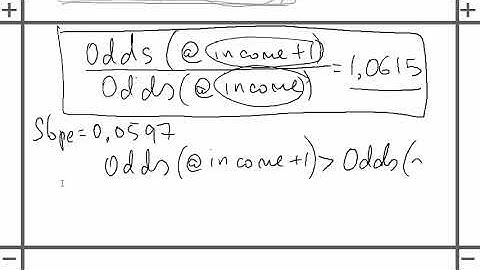 Odds (@ income+1)
Odds (@ income) = 1,0615
Slope = 0,0597
Odds (@ income+1) > Odds (